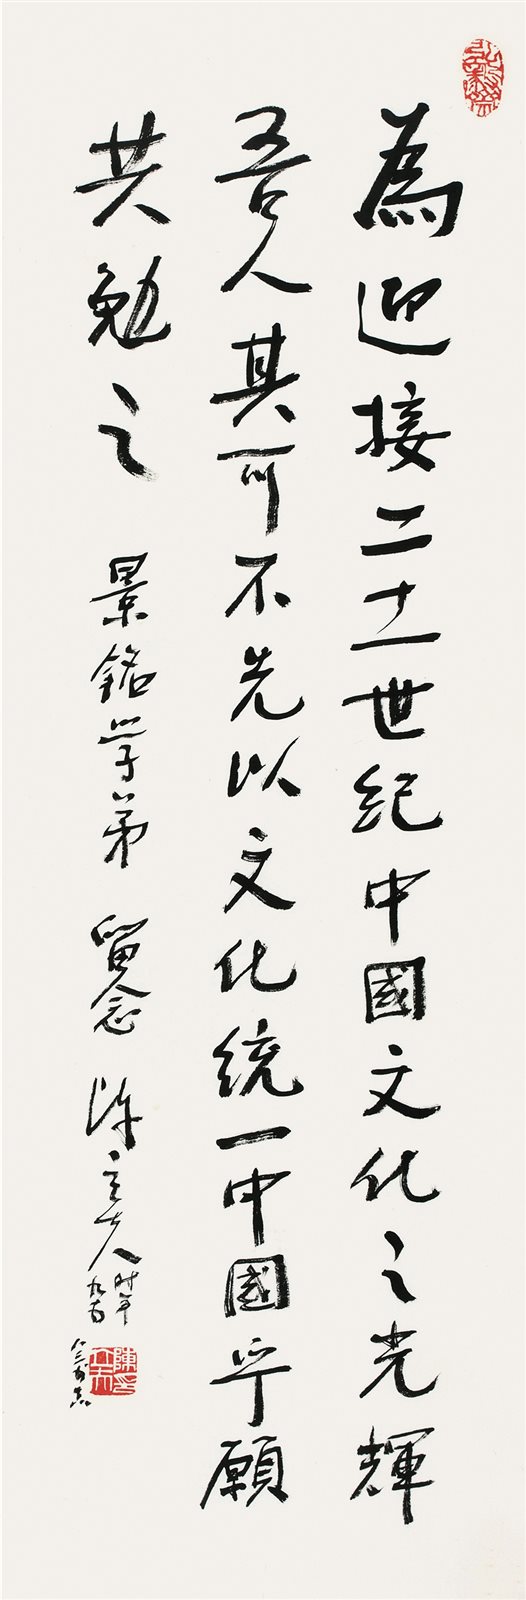 為迎接二十一世紀中國文化之光輝
吾人其可不先以文化統一中國乎願
共勉之 景銘学弟 留念 陈立夫 时年